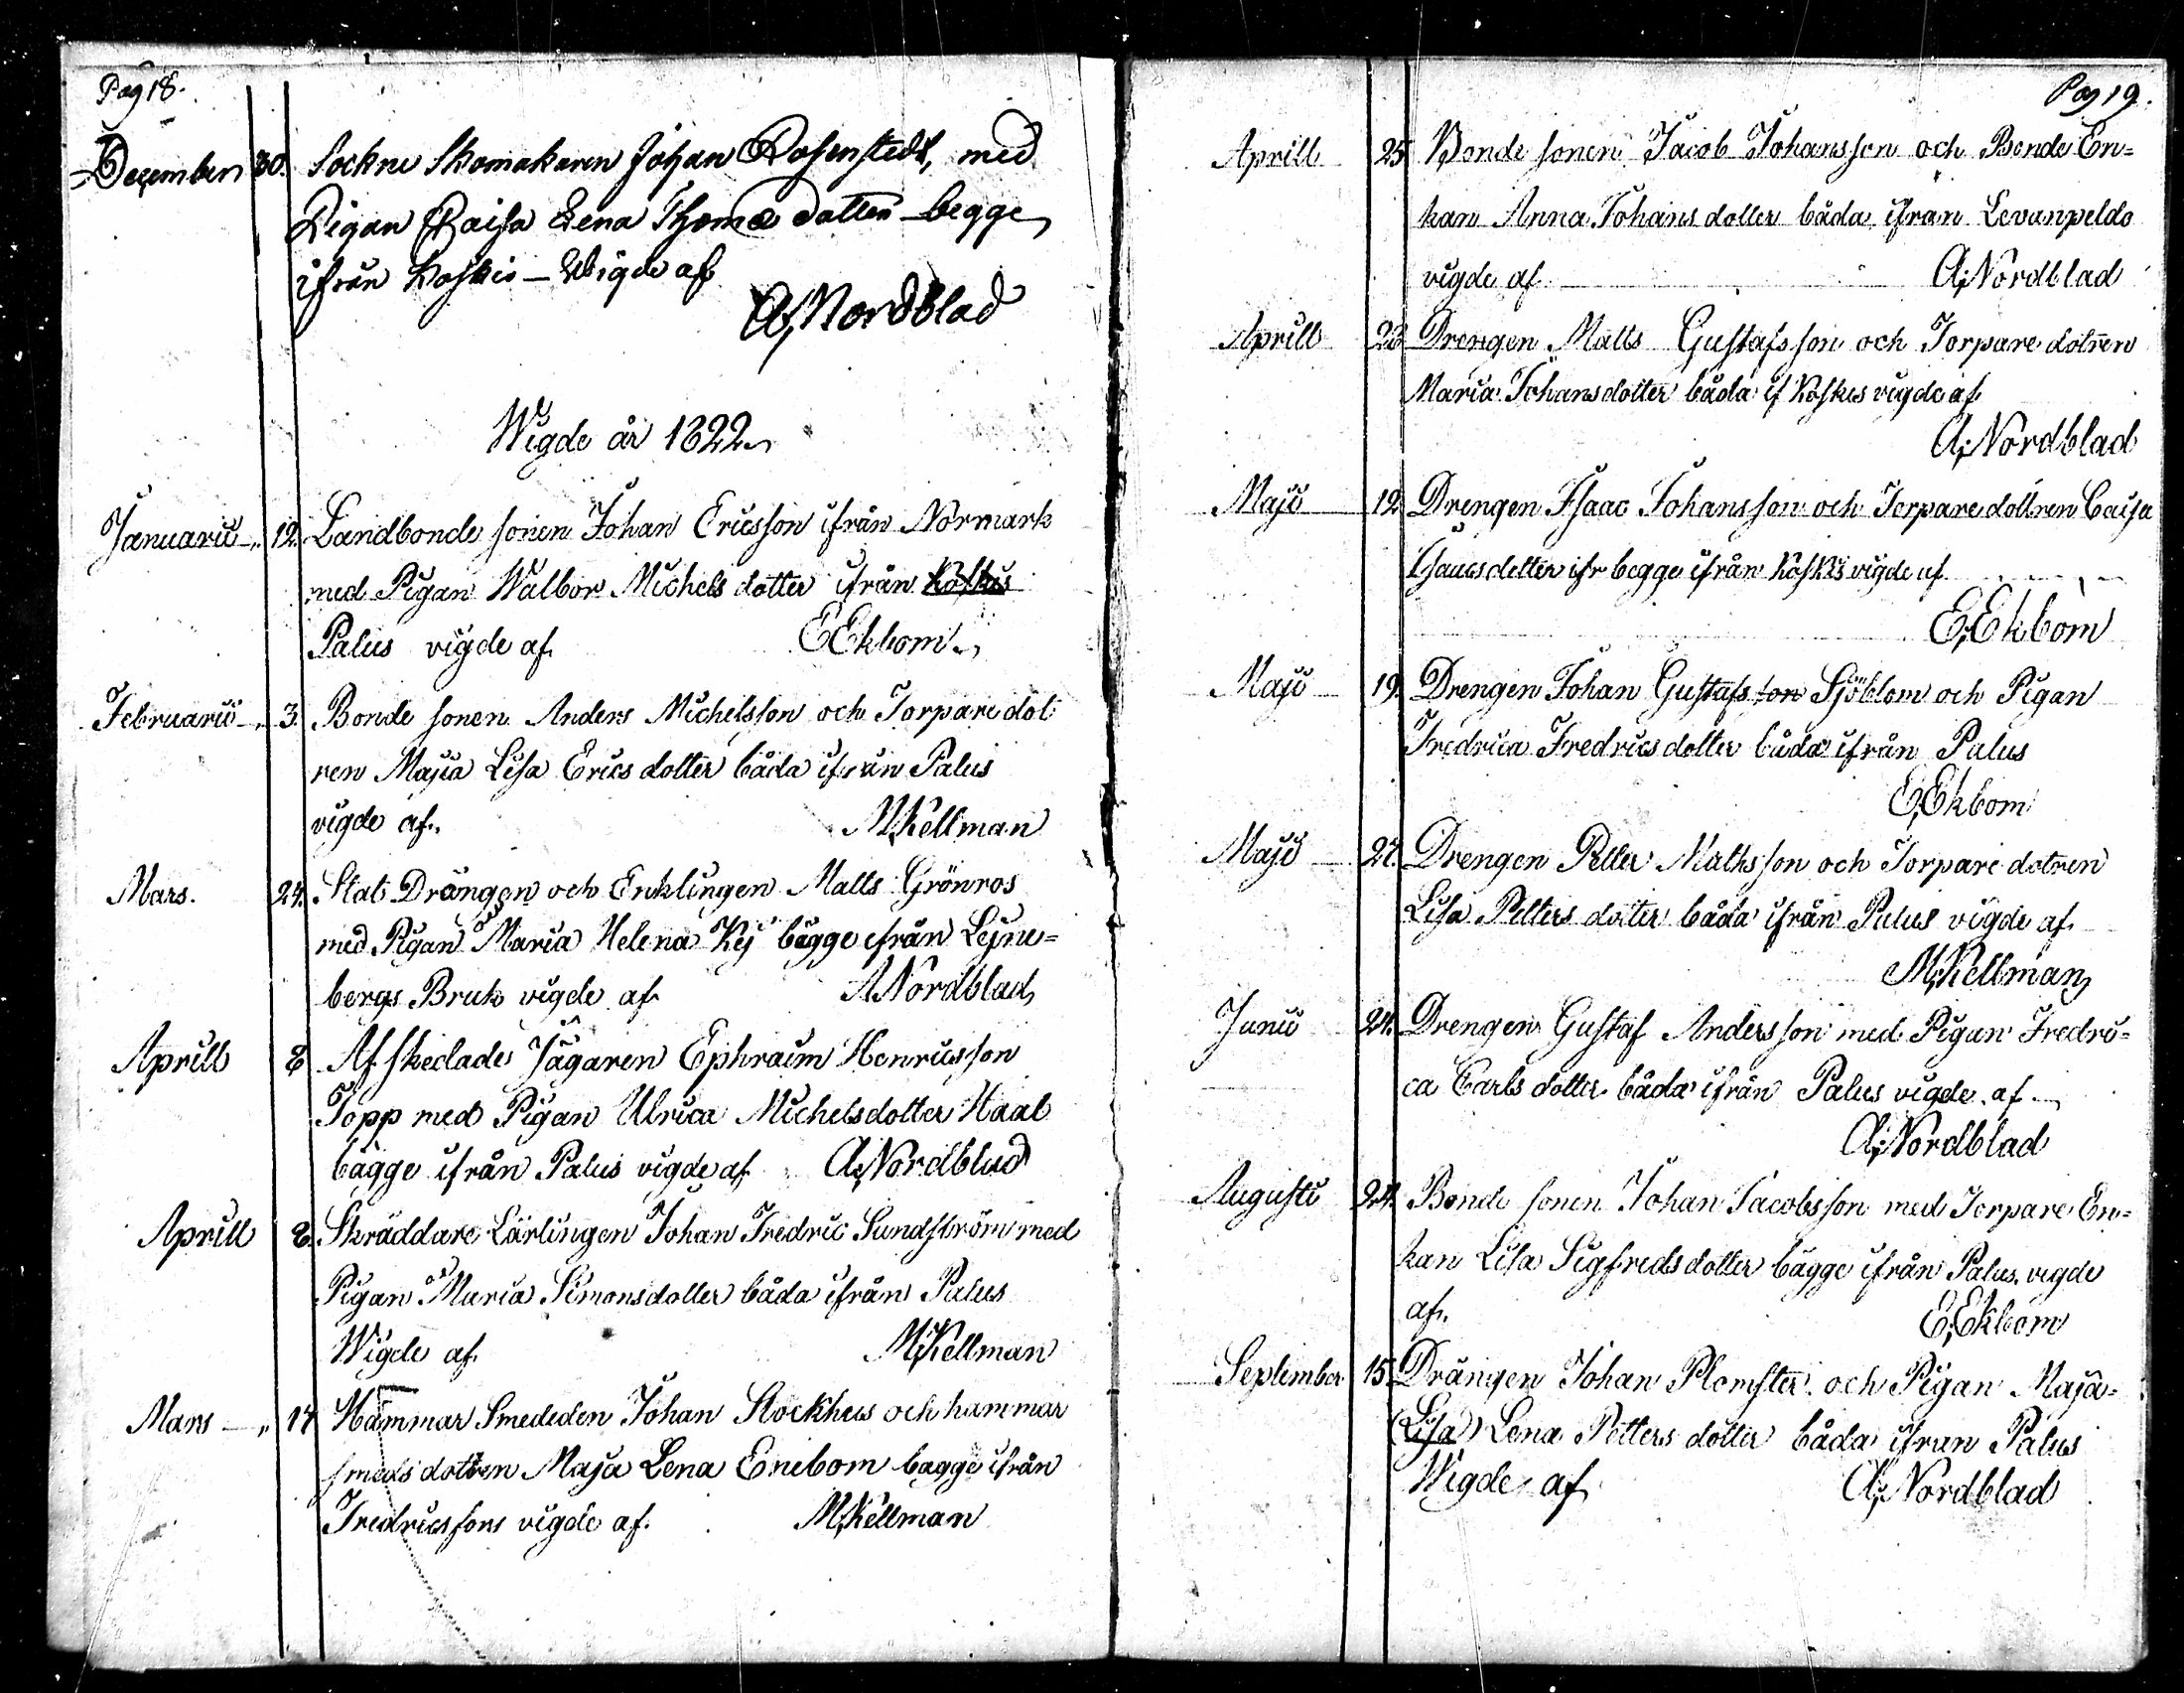 Pag 18.
December 30. Sockne Skomakaren Johan Rosenstedt, med
Pigan Caisa Lena Thomæ dotter begge
ifrån Koskis – Wigde af
A,Nordblad
Wigde år 1822
Januarii 12. Landbonde sonen Johan Ericsson ifrån Normark
med Pigan Walbor Michels dotter ifrån Koskis
Palus vigde af EEkbom
Februarii 3. Bonde sonen Anders Michelsson och Torpare dot
ren Maja Lisa Erics dotter båda ifrån Palus
vigde af. M,Kellman
Mars. 24. Stat Drängen och Enklingen Matts Grönros
med Pigan Maria Helena Kej bägge ifrån Lejne=
bergs Bruk vigde af A,Nordblad
Aprill 8 Afskedade Jägaren Ephraim Henricsson
Topp med Pigan Ulrica Michelsdotter Haal
bägge ifrån Palus vigde af A,Nordblad
Aprill 8. Skräddare Lärlingen Johan Fredric Sundström med
Pigan Maria Simonsdotter båda ifrån Palus
Wigde af M,Kellman
Mars 17 Hammar Smededen Johan Stockhus och hammar
smeds dottren Maja Lena Enebom bagge ifrån
Fredricsfors vigde af. M,Kellman
Pag 19.
Aprill 25 Bonde sonen Jacob Johansson och Bonde En=
kan Anna Johans dotter båda ifrån Levanpeldo
vigde af A;Nordblad
Aprill 28 Drengen Matts Gustafsson och Torpare dotren
Maria Johansdotter båda if Koskis vigde af
A;Nordblad
Maji 12. Drengen Isaac Johansson och Torpare dottren Caisa
Isaacsdotter ifr begge ifrån Koskis vigde af
E,Ekbom
Maji 19. Drengen Johan Gustafs son Sjöblom och Pigan
Fredrica Fredrics dotter båda ifrån Palus
E,Ekbom
Maji 27. Drengen Petter Mathsson och Torpare dotren
Lisa Petters dotter båda ifrån Palus vigde af
M,Kellman
Junii 24. Drengen Gustaf Andersson med Pigan Fredri=
ca Carls dotter båda ifrån Palus vigde af
A;Nordblad
Augusti 24. Bonde sonen Johan Jacobsson med Torpare En=
kan Lisa Sigfrids dotter bägge ifrån Palus vigde
af. E,Ekbom
September 15. Drängen Johan Plomster och Pigan Maja=
(Lisa) Lena Petters dotter båda ifran Palus
Wigde af A;Nordblad